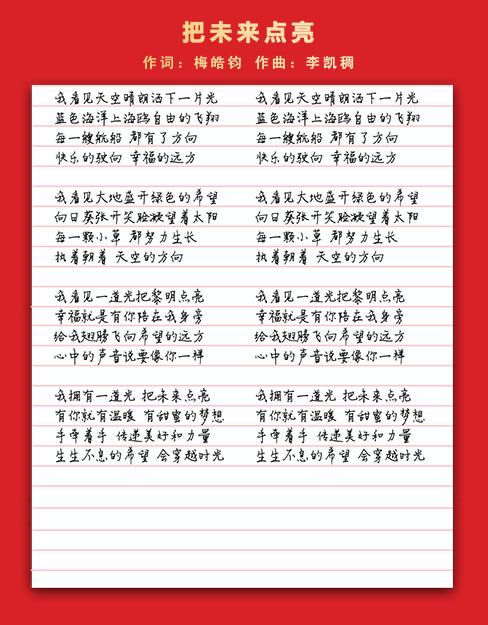 把未来点亮
作词：梅皓钧 作曲：李凯稠
我看见天空晴朗洒下一片光 我看见天空晴朗洒下一片光
蓝色海洋上海鸥自由的飞翔 蓝色海洋上海鸥自由的飞翔
每一艘航船 都有了方向 每一艘航船 都有了方向
快乐的驶向 幸福的远方 快乐的驶向 幸福的远方
我看见大地盛开绿色的希望 我看见大地盛开绿色的希望
向日葵张开笑脸凝望着太阳 向日葵张开笑脸凝望着太阳
每一颗小草 都努力生长 每一颗小草 都努力生长
执着朝着 天空的方向 执着朝着 天空的方向
我看见一道光把黎明点亮 我看见一道光把黎明点亮
幸福就是有你陪在我身旁 幸福就是有你陪在我身旁
给我翅膀飞向希望的远方 给我翅膀飞向希望的远方
心中的声音说要像你一样 心中的声音说要像你一样
我拥有一道光 把未来点亮 我拥有一道光 把未来点亮
有你就有温暖 有甜蜜的梦想 有你就有温暖 有甜蜜的梦想
手牵着手 传递美好和力量 手牵着手 传递美好和力量
生生不息的希望 会穿越时光 生生不息的希望 会穿越时光